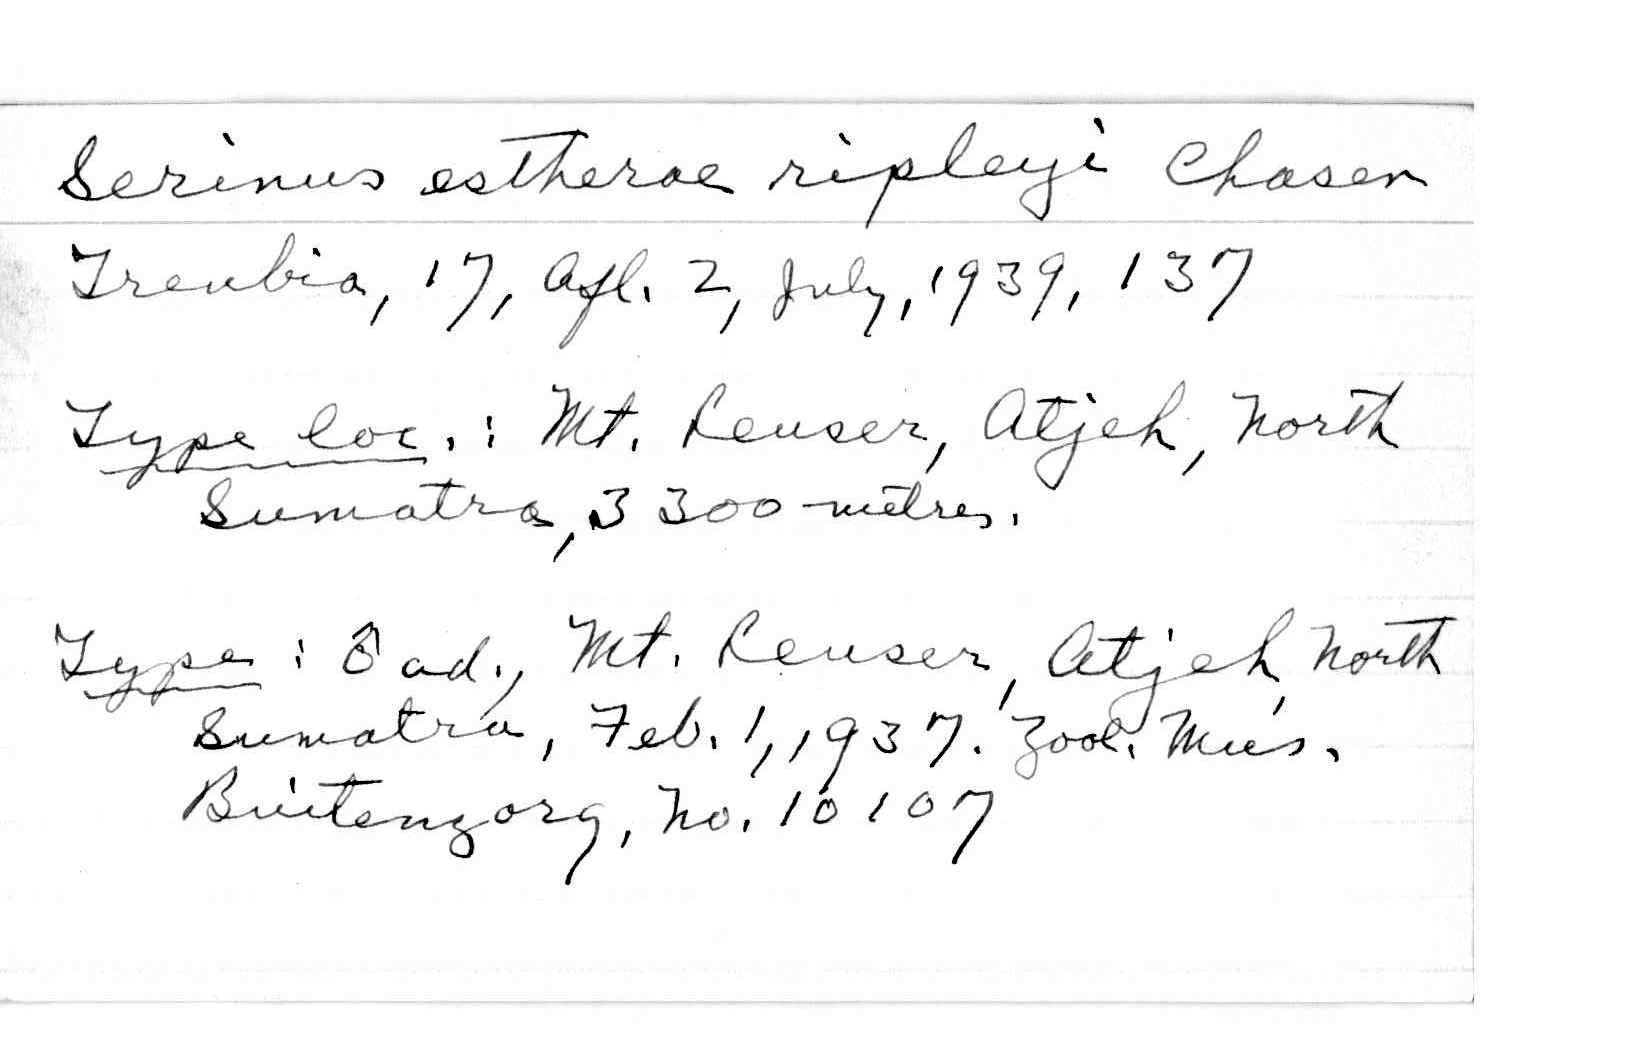 Serinus estherae ripleyi Chasen
Treubia, 17, Afl. 2, July, 1939, 137
Type loc.: Mt. Leuser, Atjeh, North
Sumatra, 3300 metres.
Type: ♂ ad., Mt. Leuser, Atjeh, North
Sumatra, Feb. 1, 1937. Zool. Mus.
Buitenzorg, No. 10107